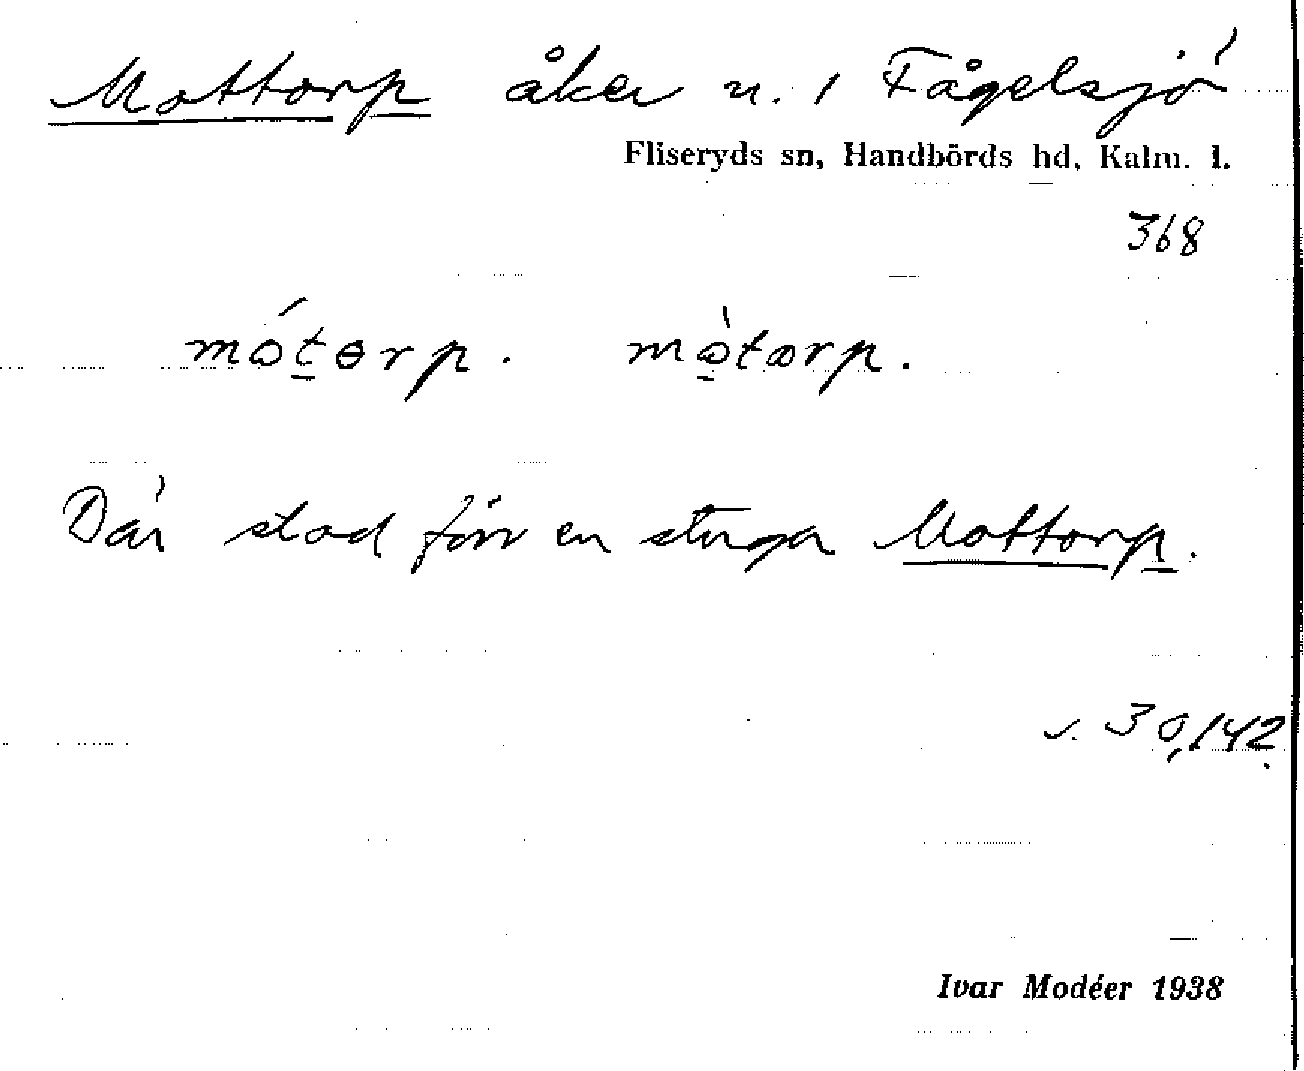 Mottorp åker n. 1 Fågelsjö
Fliseryds sn, Handbörds hd, Kalm. l.
368
mótorp. mòtorp.
Där stod förr en stuga Mottorp.
s. 30,142
Ivar Modéer 1938